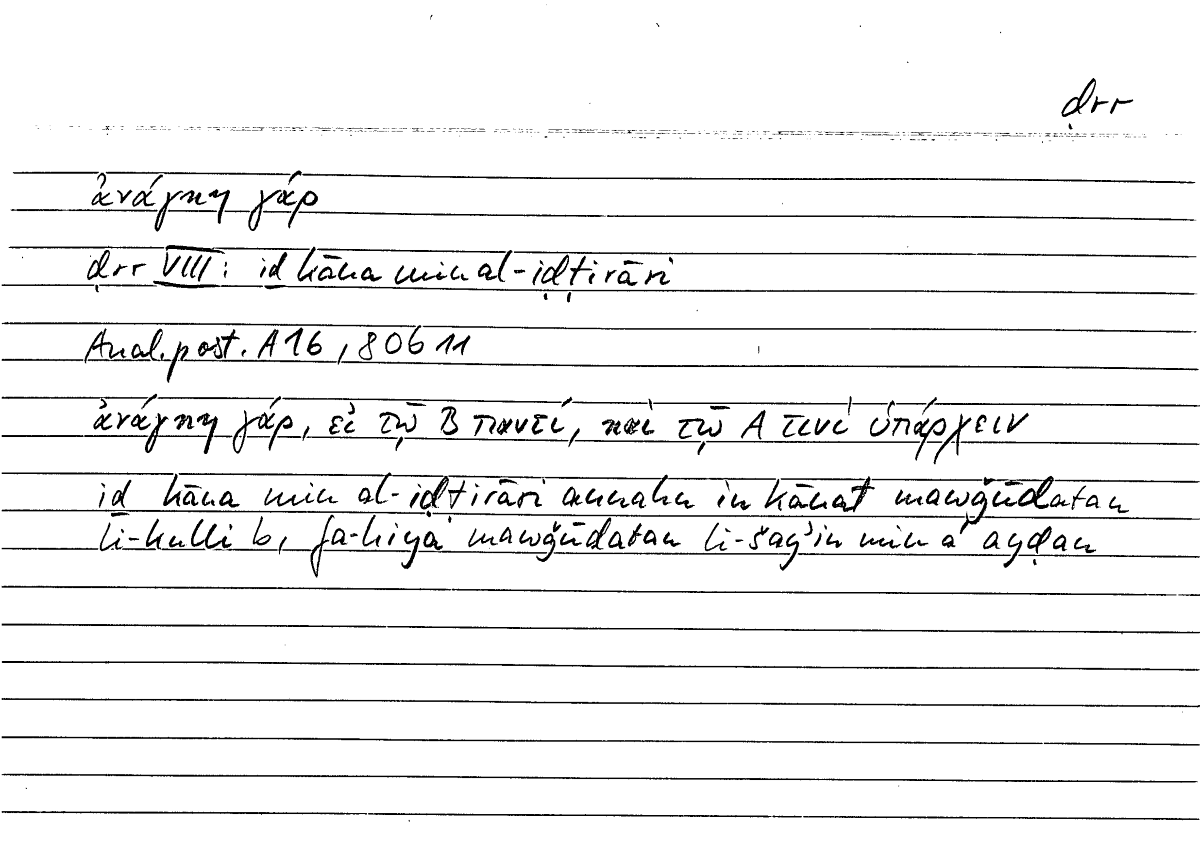 ḍrr
ἀνάγκη γάρ
ḍrr VIII: iḏ kāna min al-iḍṭirāri
Anal. post. A 16, 80b11
ἀνάγκη γάρ, εἰ τῷ B παντί, καὶ τῷ A τινὶ ὑπάρχειν
iḏ kāna min al-iḍṭirāri annahu in kānat mawǧūdatan
li-kulli b, fa-hiya mawǧūdatan li-šay'in min a ayḍan